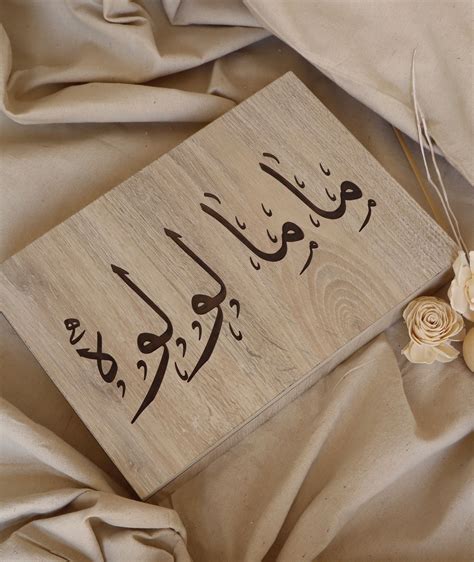 ماما لولوه